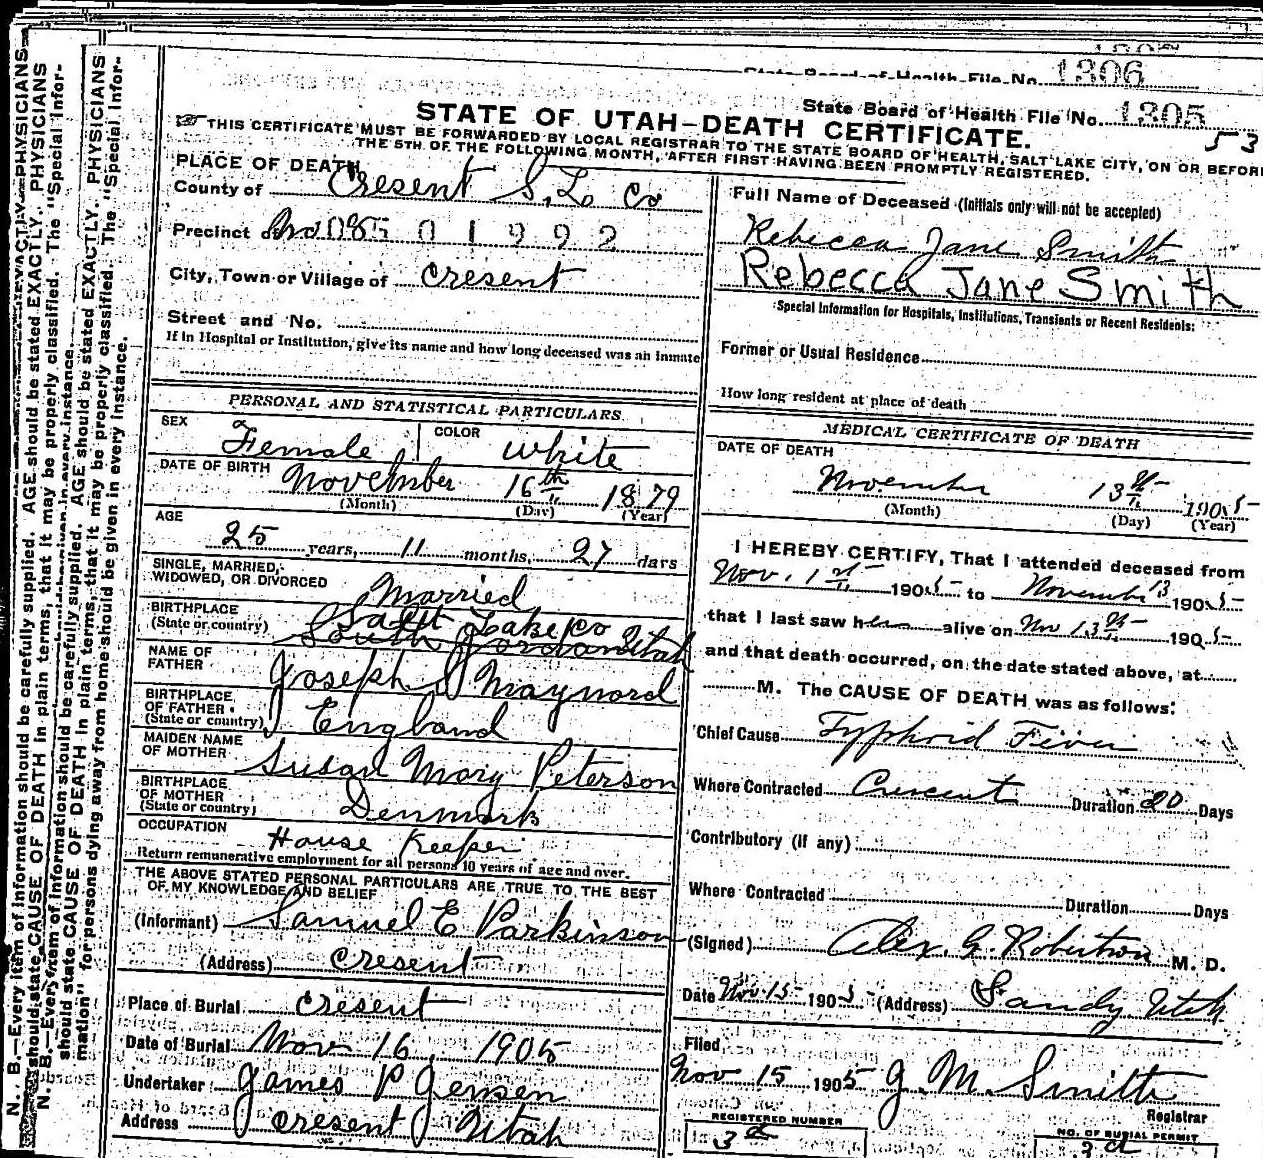 State Board of Health File No. 1306
State Board of Health File No. 1305
53
STATE OF UTAH—DEATH CERTIFICATE.
THIS CERTIFICATE MUST BE FORWARDED BY LOCAL REGISTRAR TO THE STATE BOARD OF HEALTH, SALT LAKE CITY, ON OR BEFORE
THE 5TH OF THE FOLLOWING MONTH, AFTER FIRST HAVING BEEN PROMPTLY REGISTERED.
PLACE OF DEATH
County of Cresent S. L. Co
Precinct of 01992
City, Town or Village of cresent
Street and No.
If in Hospital or Institution, give its name and how long deceased was an inmate
PERSONAL AND STATISTICAL PARTICULARS.
SEX Female COLOR white
DATE OF BIRTH November 16th 1879
(Month) (Day) (Year)
AGE
25 years, 11 months, 27 days
SINGLE, MARRIED,
WIDOWED, OR DIVORCED Married
BIRTHPLACE Salt Lake co
(State or country) South Jordan Utah
NAME OF
FATHER Joseph Maynord
BIRTHPLACE
OF FATHER
(State or country) England
MAIDEN NAME
OF MOTHER Susan Mary Peterson
BIRTHPLACE
OF MOTHER
(State or country) Denmark
OCCUPATION House Keeper
Return remunerative employment for all persons 10 years of age and over.
THE ABOVE STATED PERSONAL PARTICULARS ARE TRUE TO THE BEST
OF MY KNOWLEDGE AND BELIEF
(Informant) Samuel E Parkinson
(Address) cresent
Place of Burial cresent
Date of Burial Nov 16, 1905
Undertaker James P Jensen
Address cresent Utah
Full Name of Deceased (Initials only will not be accepted)
Rebecca Jane Smith
Rebecca Jane Smith
Special Information for Hospitals, Institutions, Transients or Recent Residents:
Former or Usual Residence
How long resident at place of death
MEDICAL CERTIFICATE OF DEATH
DATE OF DEATH
November 13th 1905
(Month) (Day) (Year)
I HEREBY CERTIFY, That I attended deceased from
Nov. 1st 1905 to November 13 1905
that I last saw her alive on Nov 13th 1905
and that death occurred, on the date stated above, at
M. The CAUSE OF DEATH was as follows:
Chief Cause Typhoid Fever
Where Contracted Crescent Duration 20 Days
Contributory (if any)
Where Contracted Duration Days
(Signed) Alex. G. Robertson M. D.
Date Nov 15 1905 (Address) Sandy Utah
Filed
Nov 15 1905 J. M. Smith
Registrar
REGISTERED NUMBER NO. OF BURIAL PERMIT
N. B.—Every item of information should be carefully supplied. AGE should be stated EXACTLY. PHYSICIANS
should state CAUSE OF DEATH in plain terms, that it may be properly classified. The "Special Infor-
N. B.—Every item of information should be carefully supplied. AGE should be stated EXACTLY. PHYSICIANS
should state CAUSE OF DEATH in plain terms, that it may be properly classified. The "Special Infor-
mation" for persons dying away from home should be given in every instance.